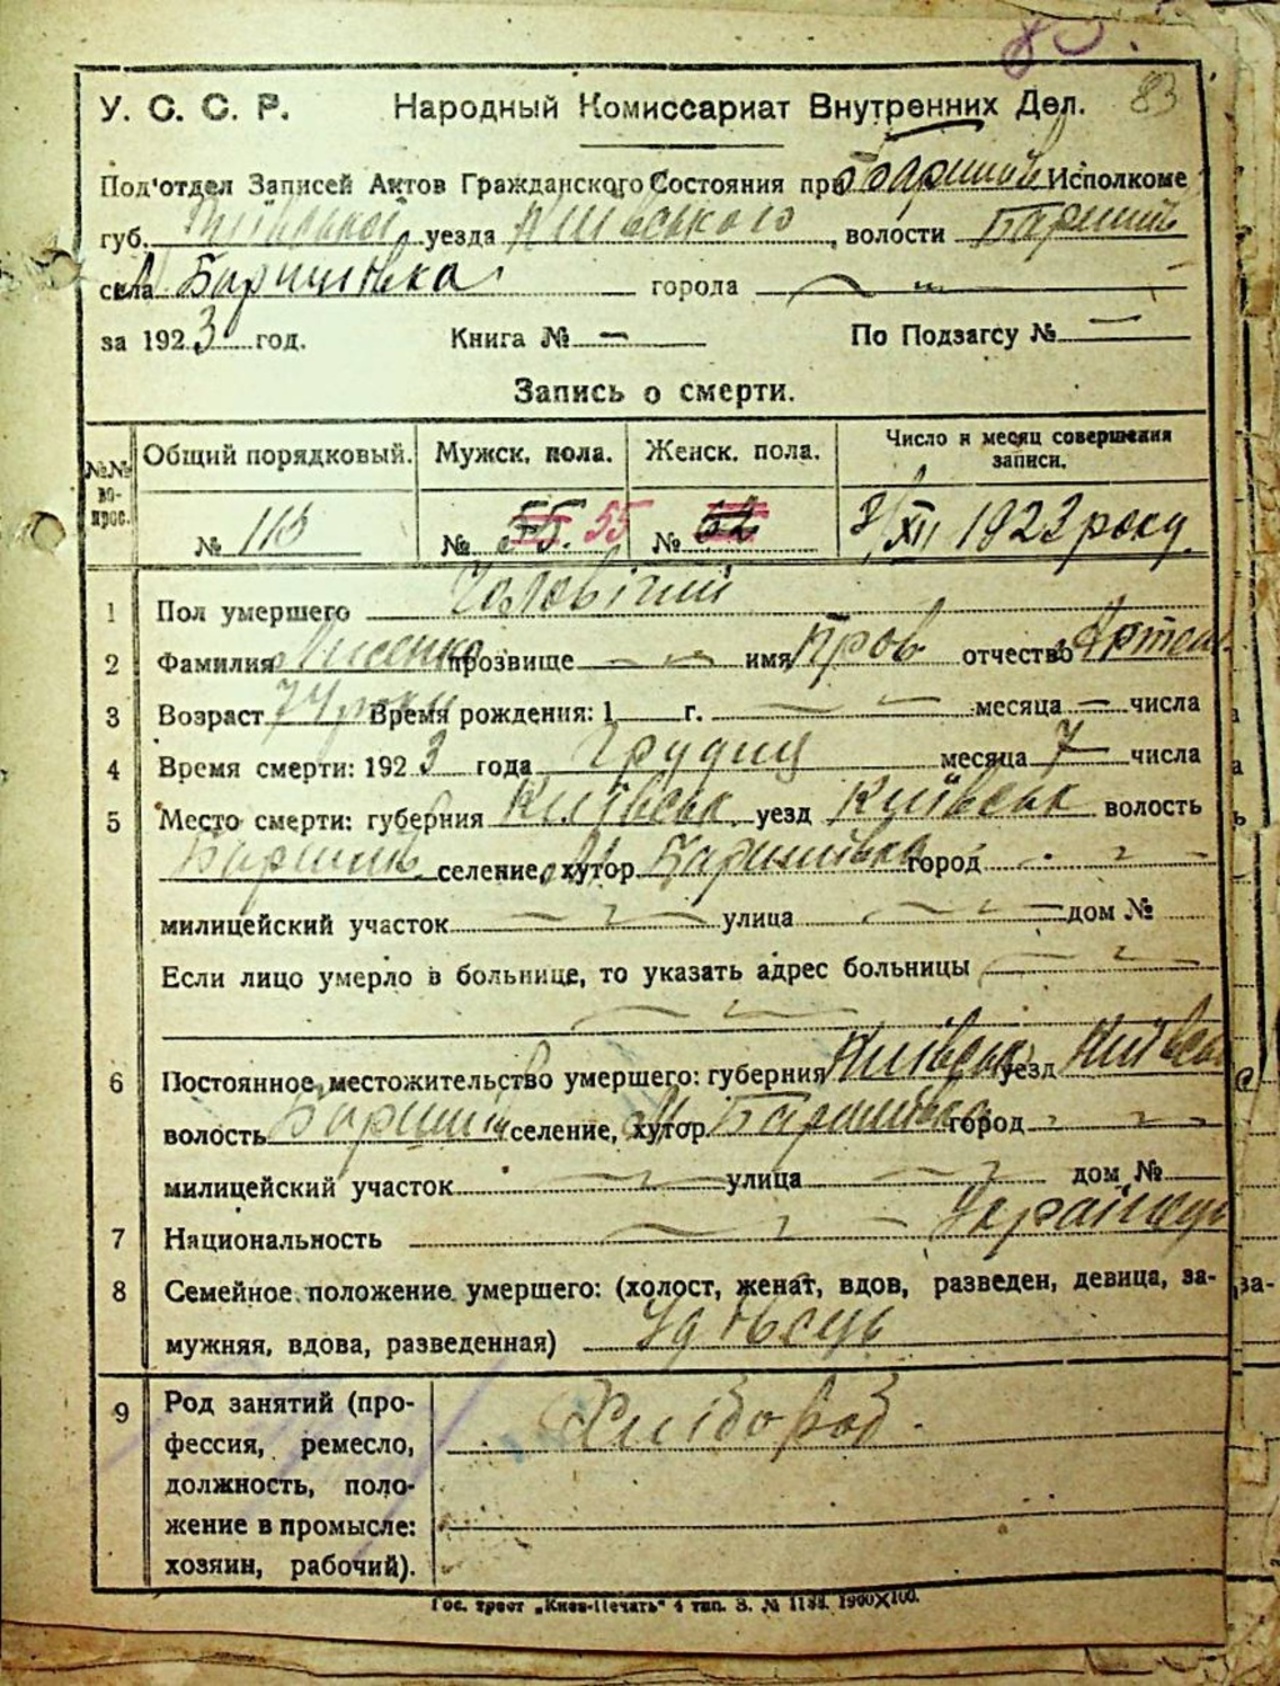 83
У. С. С. Р. Народный Комиссариат Внутренних Дел.
Под'отдел Записей Актов Гражданского Состояния при Баришів Исполкоме
губ. Київської уезда Київського, волости Баришів
села М. Баришівка города
за 1923 год. Книга № — По Подзагсу № —
Запись о смерти.
№№ вопрос. Общий порядковый. Мужск. пола. Женск. пола. Число и месяц совершения записи.
№ 113 № 55. 55 № 62 /XII 1923 року.
1 Пол умершего Чоловічий
2 Фамилия Лисенко прозвище — имя Пров отчество Артем
3 Возраст 74 роки Время рождения: 1 г. — месяца — числа
4 Время смерти: 1923 года Грудня месяца 7 числа
5 Место смерти: губерния Київськ. уезд Київськ волость
Баришів. селение, хутор М. Баришівка город
милицейский участок улица дом №
Если лицо умерло в больнице, то указать адрес больницы
6 Постоянное местожительство умершего: губерния Київськ уезд Київськ
волость Баришів селение, хутор М. Баришівка город
милицейский участок улица дом №
7 Национальность Українець
8 Семейное положение умершего: (холост, женат, вдов, разведен, девица, за-
мужняя, вдова, разведенная) Удовець
9 Род занятий (про-
фессия, ремесло,
должность, поло-
жение в промысле:
хозяин, рабочий).
Хлібороб.
Гос. трест „Киев-Печать" 4 тип. З. № 1188. 1900×100.